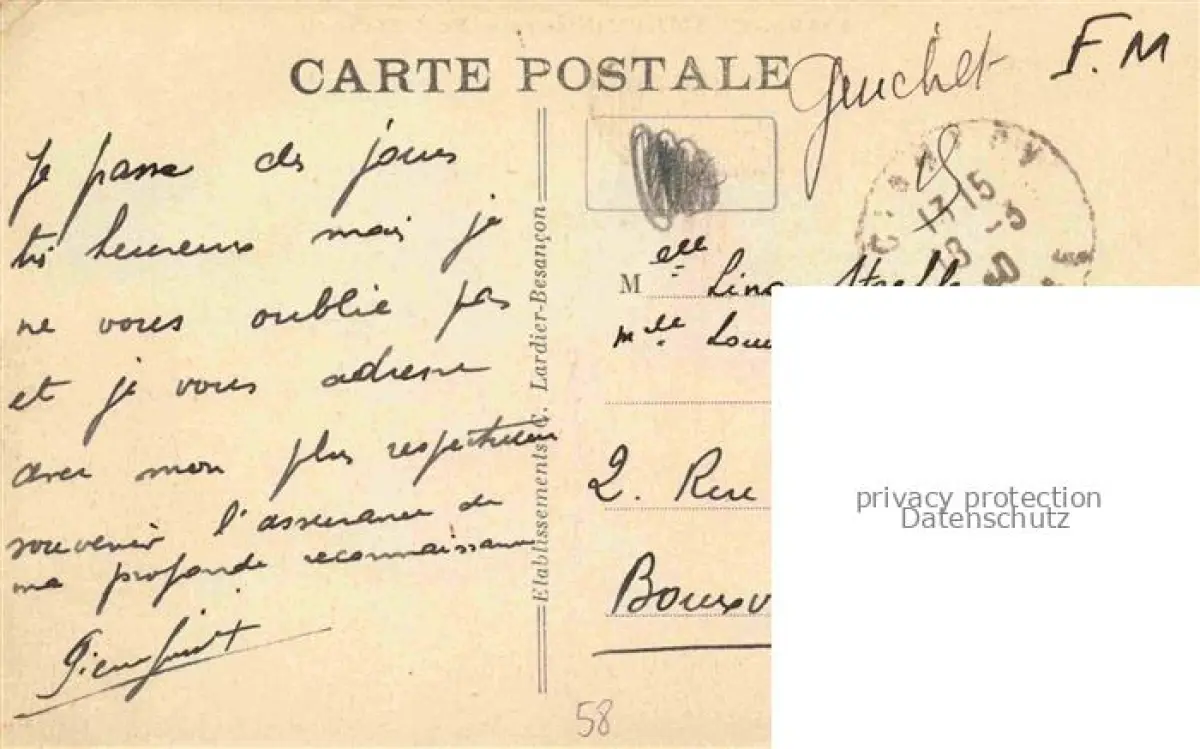 CARTE POSTALE
Guichet
F.M
Je passe des jours
très heureux mais je
ne vous oublie pas
et je vous adresse
avec mon plus respectueux
souvenir l'assurance de
ma profonde reconnaissance
Etablissements C. Lardier-Besançon
17 15
13 -3
M elle Lina
Melle
2. Rue
58
privacy protection
Datenschutz